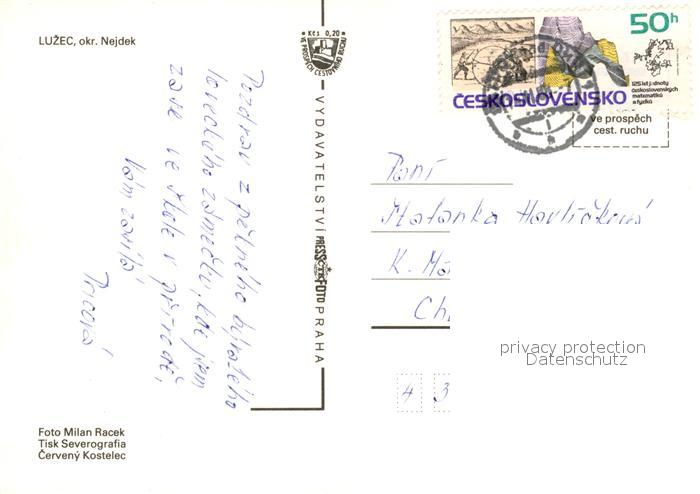 LUŽEC, okr. Nejdek
Kčs 0,20
VE PROSPĚCH CESTOVNÍHO RUCHU
Pozdrav z pěkného bývalého
loveckého zámečku, kde jsem
zase ve škole v přírodě,
Vám zasílá
VYDAVATELSTVÍ PRESSFOTO PRAHA
ČTK
50h
125 let jednoty
československých
matematiků
a fyziků
ČESKOSLOVENSKO
ve prospěch
cest. ruchu
Paní
Havlíčková
K. Má
Ch
4 3
privacy protection
Datenschutz
Foto Milan Racek
Tisk Severografia
Červený Kostelec